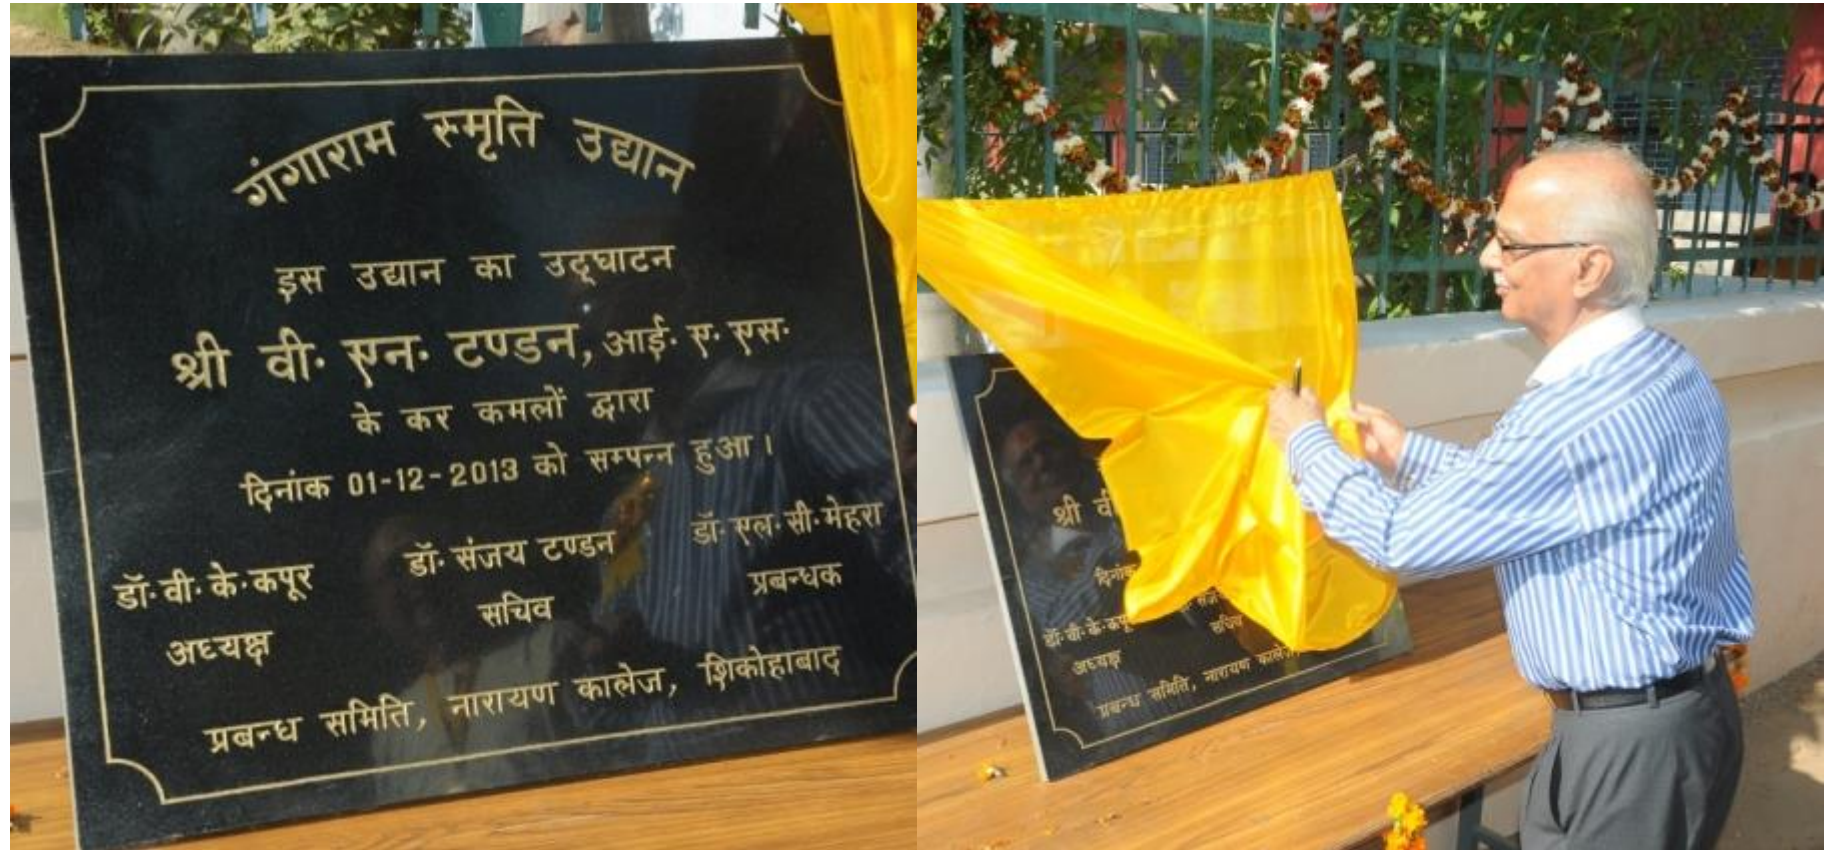 गंगाराम स्मृति उद्यान
इस उद्यान का उद्घाटन
श्री वी. एन. टण्डन, आई. ए. एस.
के कर कमलों द्वारा
दिनांक 01-12-2013 को सम्पन्न हुआ।
डॉ. वी. के. कपूर डॉ. संजय टण्डन डॉ. एल. सी. मेहरा
अध्यक्ष सचिव प्रबन्धक
प्रबन्ध समिति, नारायण कालेज, शिकोहाबाद
श्री वी
दिनांक
डॉ. वी. के. कपू
अध्यक्ष सचिव
प्रबन्ध समिति, नारायण कालेज